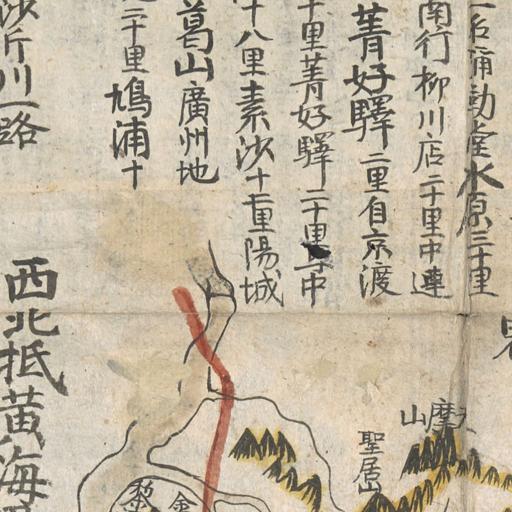 動堂水原三十里
南行柳川店二十里中連
菁好驛二里自京渡
十里菁好驛二十里
中
十八里素沙十里陽城
葛山廣州地
二十里鳩浦十
沙斤川一路
西北抵黄海
摩
山
聖居山
黎